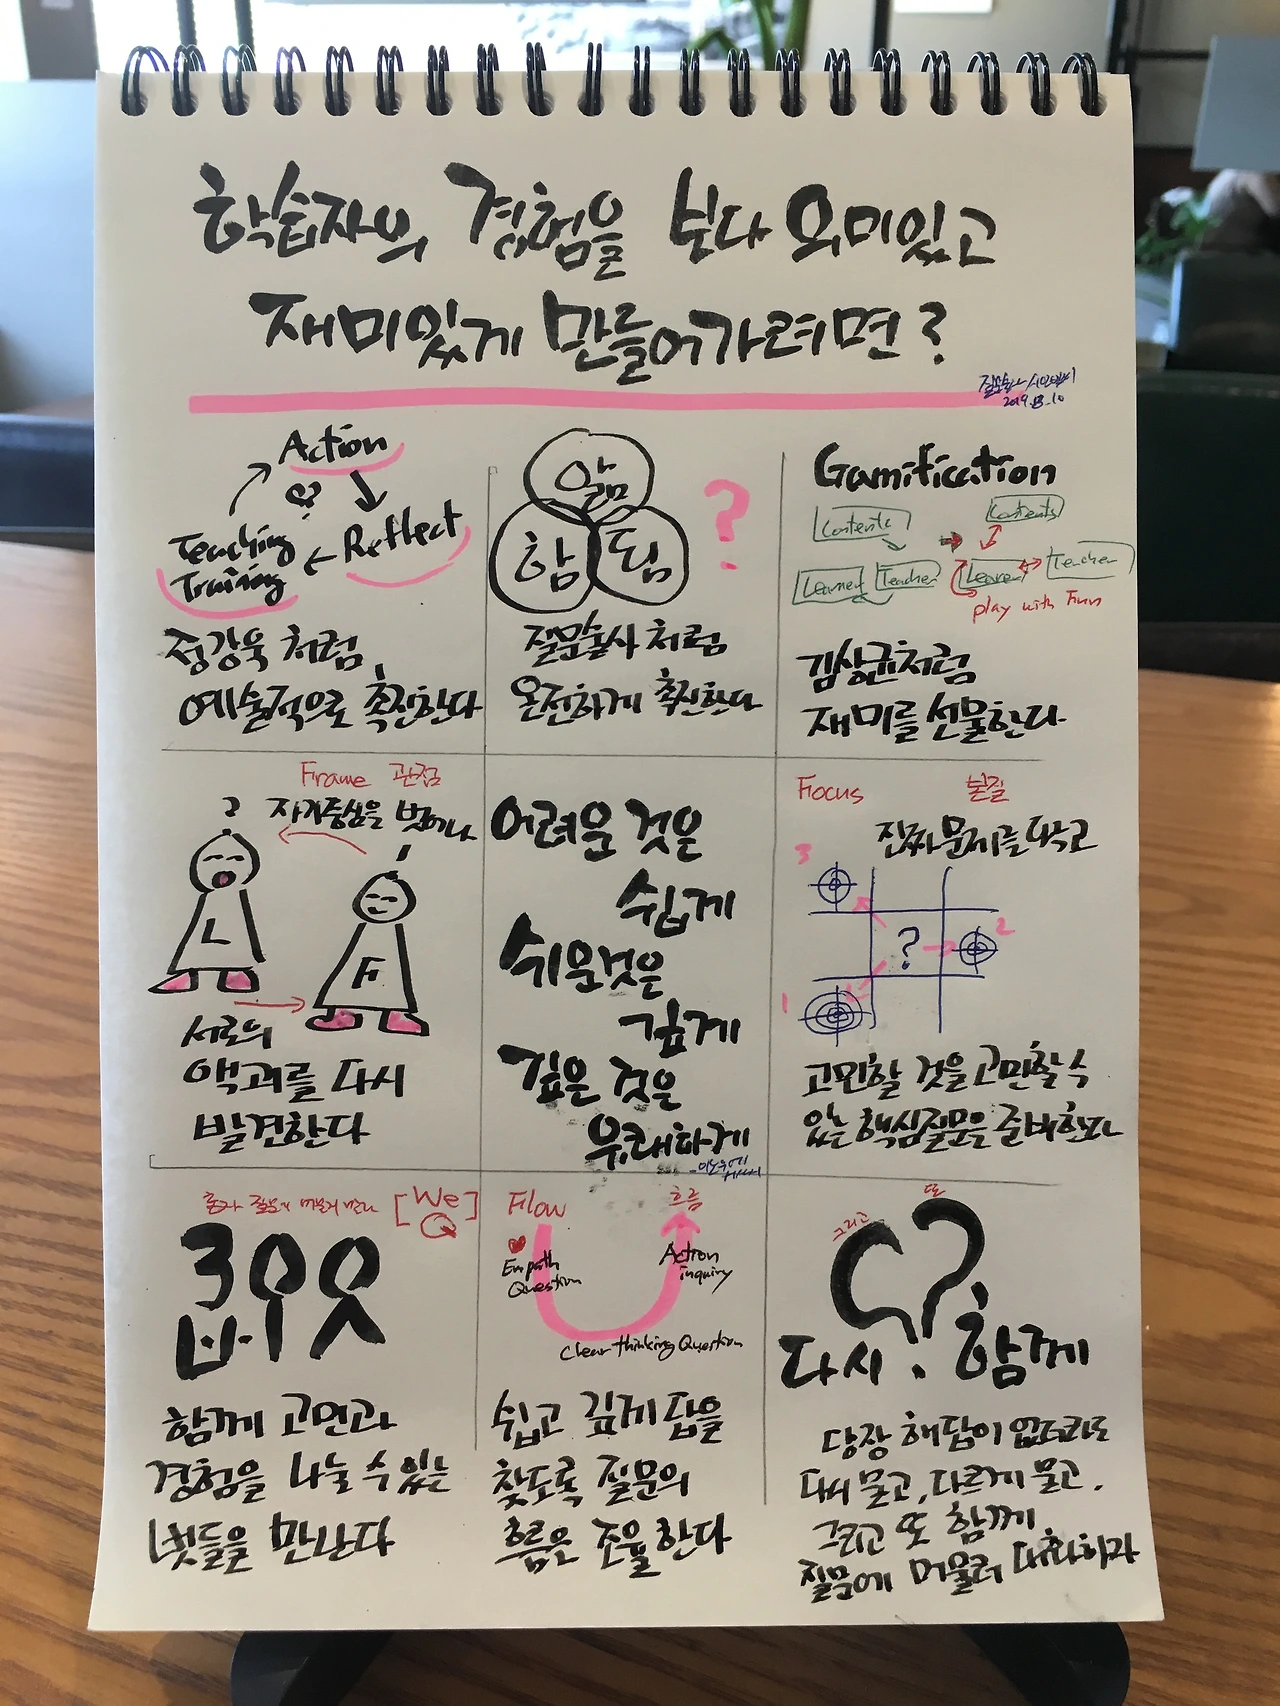 학습자의 경험을 보다 의미있고
재미있게 만들어가려면?
질문술사
Action
Reflect
Teaching
Training
정강욱처럼,
예술적으로 촉진한다
앎
함
됨
?
질문술사처럼
온전하게 촉진한다
Gamification
Contents
Learner
Teacher
Contents
Learner
Teacher
play with Fun
김상균처럼
재미를 선물한다
Frame 관점
자기중심을 벗어나
L
F
서로의
맥락를 다시
발견한다
어려운 것은
쉽게
쉬운것은
깊게
깊은 것은
유쾌하게
Focus 본질
진짜 문제를 찾고
3
?
2
1
고민할 것을 고민할 수
있는 핵심질문을 준비한다
[We
Q]
함께 고민과
경험을 나눌 수 있는
벗들을 만난다
Flow 흐름
Empath
Question
Action
inquiry
Clear thinking Question
쉽고 깊게 답을
찾도록 질문의
흐름을 조율한다
그리고 또
다시. 함께
당장 해답이 없더라도
다시 묻고, 다르게 묻고,
그리고 또 함께
질문에 머물러 대화하라